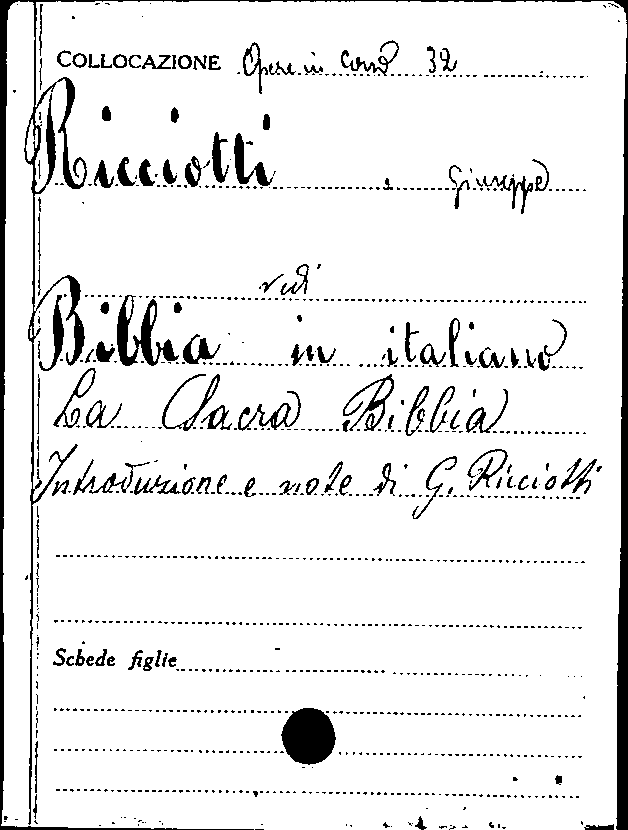 COLLOCAZIONE Opere in Corso 32
Ricciotti, Giuseppe
vedi
Bibbia in italiano
La Sacra Bibbia
Introduzione e note di G. Ricciotti
Schede figlie